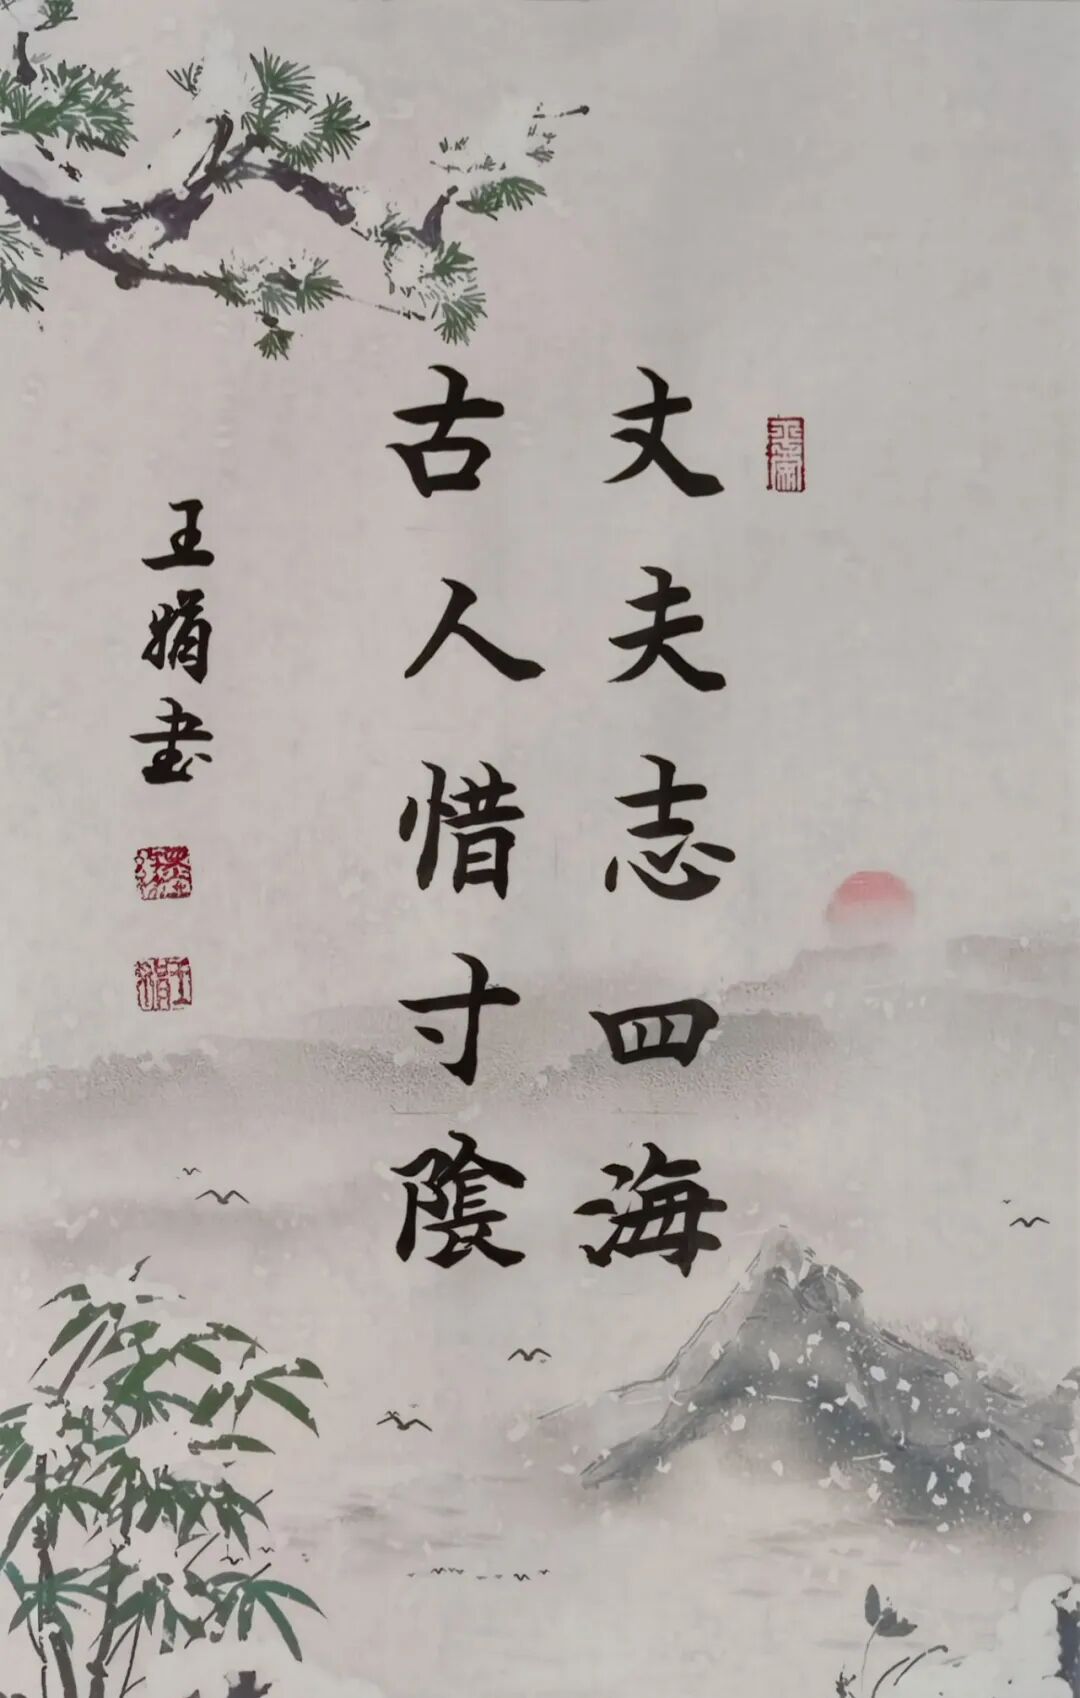 丈夫志四海
古人惜寸陰
王娟书